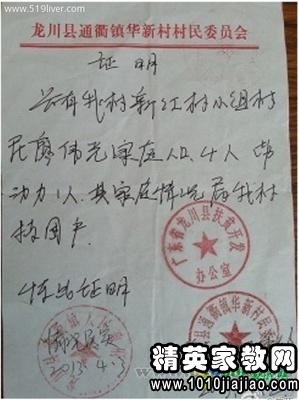 www.519liver.com
龙川县通衢镇华新村村民委员会
证明
兹有我村新红村小组村
民廖伟光家庭人口,4人劳
动力1人.其家庭情况属我村
扶困户.
特此证明
2013.4.3
广东省龙川县扶贫开发
办公室
县通衢镇华新村村民
精英家教网
www.1010jiajiao.com